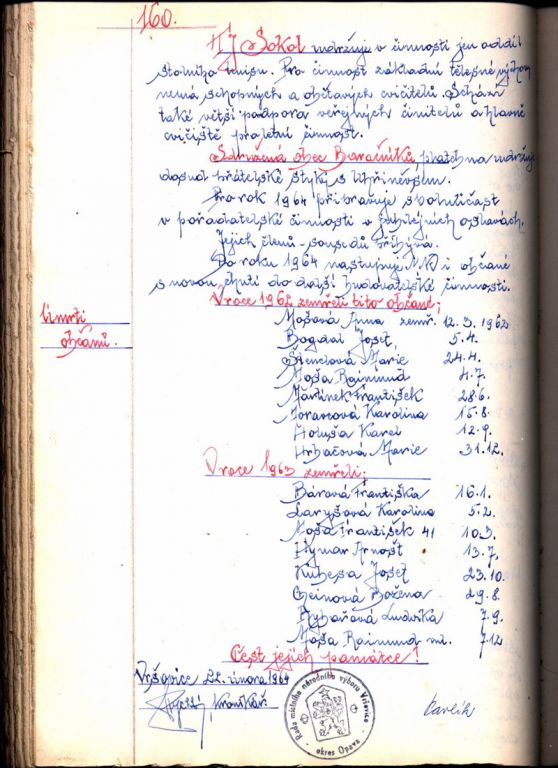 160.
TJ Sokol udržuje v činnosti jen oddíl
stolního tenisu. Pro činnost základní tělesné výchovy
nemá schopných a obětavých cvičitelů. Schází
také větší podpora veřejných činitelů a hlavně
cvičiště pro letní činnost.
Sdružená obec Baráčníků, platebna udržuje
dosud přátelské styky s Uhříněvsem.
Pro rok 1964 připravuje spoluúčast
v pořadatelské činnosti v jubilejních oslavách.
Jejich členů - sousedů přibývá.
Do roku 1964 nastupuje MNV i občané
s novou chutí do další budovatelské činnosti.
Úmrtí
občanů.
V roce 1962 zemřeli tito občané;
Mošová Anna zemř. 12.3.1962
Bogdal Josef 5.4.
Štenclová Marie 24.4.
Moša Raimund 4.7.
Martinek František 28.6.
Moravcová Karolina 15.8.
Holuša Karel 12.9.
Hrbáčová Marie 31.12.
V roce 1963 zemřeli;
Bárová Františka 16.1.
Laryšová Karolina 5.2.
Moša František 41 10.3.
Hymar Arnošt 13.7.
Kubesa Josef 23.10.
Cheinová Božena 29.8.
Rybářová Ludvika 7.9.
Moša Raimund ml. 7.12
Čest jejich památce!
Vršovice 22. února 1964
Kronikář.
Rada místního národního výboru Vršovice
okres Opava
Pavlík